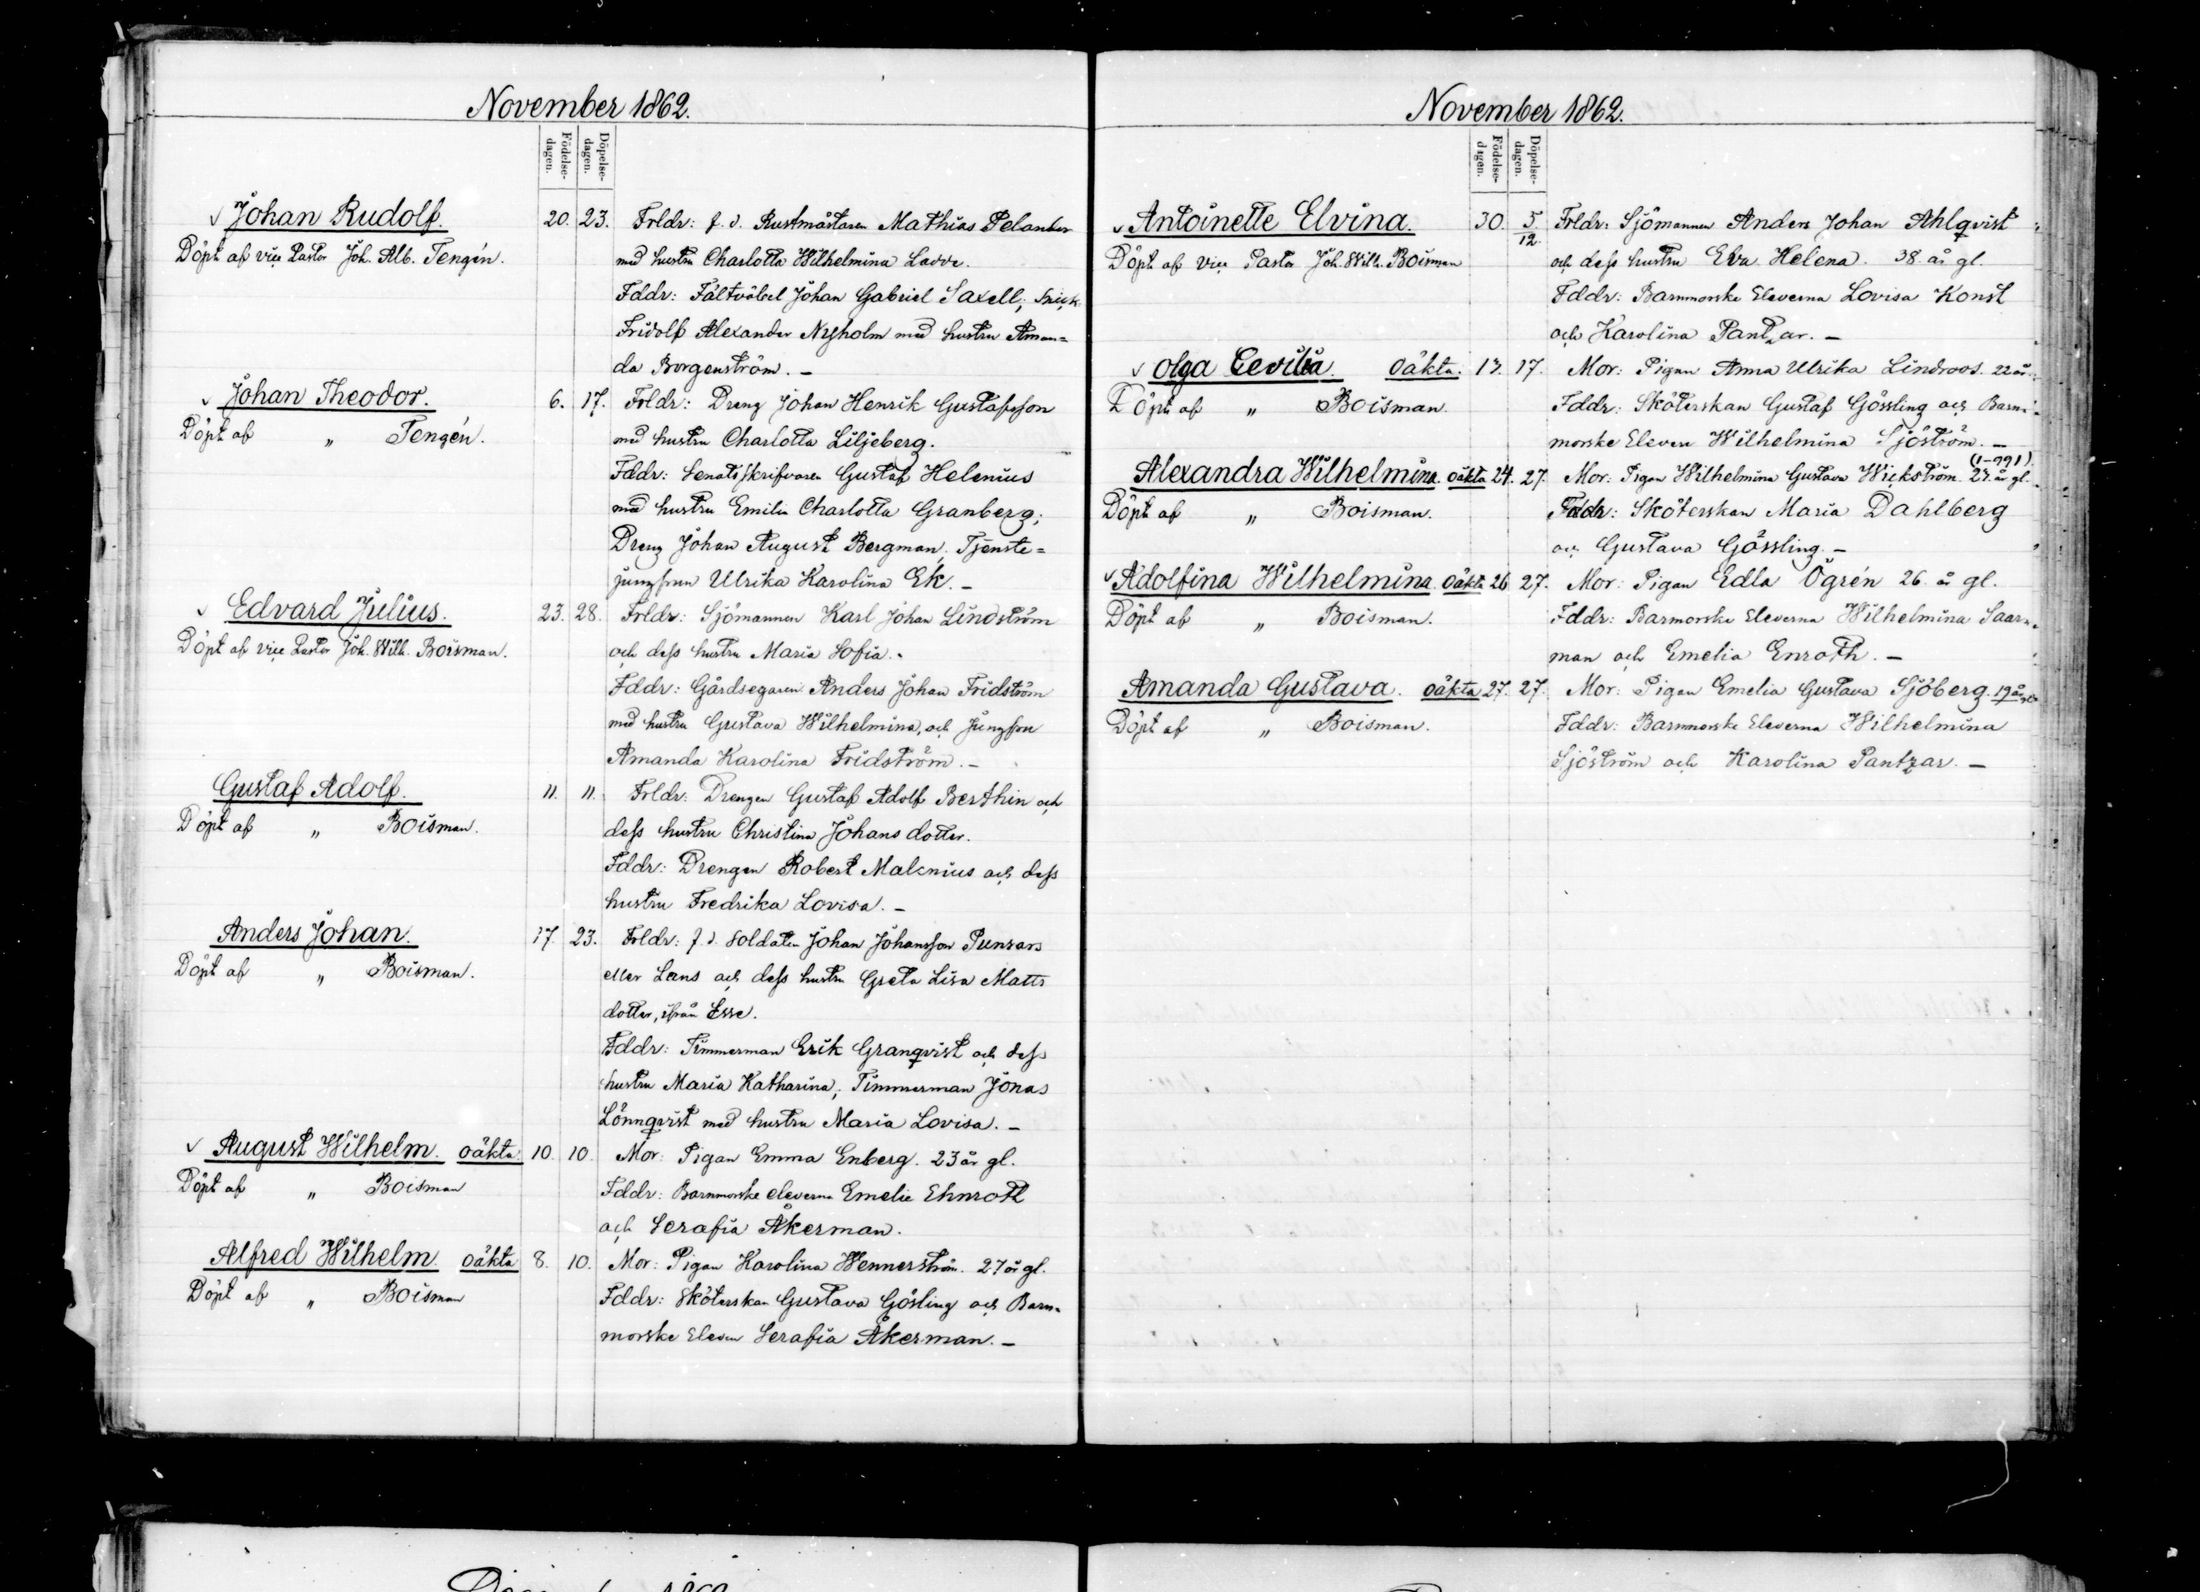 November 1862.
Födelse-dagen.
Döpelse-dagen.
Johan Rudolf. 20. 23. Frldr: f. d. Rustmästaren Mathias Pelander
Döpt af vice Pastor Joh. Alb. Tengén. med hustru Charlotta Wilhelmina
Fddr: Fältväbel Johan Gabriel Saxell;
Fridolf Alexander Nyholm med hustru Aman=
da Borgenström. —
Johan Theodor. 6. 17. Frldr: Dreng Johan Henrik Gustafsson
Döpt af „ Tengén. med hustru Charlotta Liljeberg.
Fddr: Senatsskrifvaren Gustaf Helenius
med hustru Emilia Charlotta Granberg;
Dreng Johan August Bergman. Tjenste=
jungfrun Ulrika Karolina Ek. —
Edvard Julius. 23. 28. Frldr: Sjömannen Karl Johan Lindström
Döpt af vice Pastor Joh. Wilh. Boisman. och dess hustru Maria Sofia.
Fddr: Gårdsegaren Anders Johan Fridström
med hustru Gustava Wilhelmina, och Jungfrun
Amanda Karolina Fridström. —
Gustaf Adolf. 11. 11. Frldr: Drengen Gustaf Adolf Berthin och
Döpt af „ Boisman. dess hustru Christina Johansdotter.
Fddr: Drengen Robert Malenius och dess
hustru Fredrika Lovisa. —
Anders Johan. 17. 23. Frldr: f. d. Soldaten Johan Johansson Punsars
Döpt af „ Boisman. eller Lans och dess hustru Greta Lisa Matts
dotter, ifrån Esse.
Fddr: Timmerman Erik Granqvist och dess
hustru Maria Katharina; Timmerman Jonas
Lönnqvist med hustru Maria Lovisa. —
August Wilhelm. oäkta. 10. 10. Mor: Pigan Emma Enberg. 23 år gl.
Döpt af „ Boisman Fddr: Barnmorske eleverna Emelie Ehnroth
och Serafia Åkerman.
Alfred Wilhelm. oäkta 8. 10. Mor: Pigan Karolina Wennerström. 27 år gl.
Döpt af „ Boisman Fddr: Sköterskan Gustava Gösling och Barn=
morske Eleven Serafia Åkerman. —
November 1862.
Födelse-dagen.
Döpelse-dagen.
Antoinette Elvina. 30. 5/12. Frldr: Sjömannen Anders Johan Ahlqvist
Döpt af vice Pastor Joh. Wilh. Boisman och dess hustru Eva Helena. 38 år gl.
Fddr: Barnmorske Eleverna Lovisa Konst
och Karolina Pantzar. —
Olga Cecilia. Oäkta. 17. Mor: Pigan Anna Ulrika Lindroos. 22 år
Döpt af „ Boisman. Fddr: Sköterskan Gustaf Gössling och Barn=
morske Eleven Wilhelmina Sjöström. —
(1-991)
Alexandra Wilhelmina. oäkta 24. 27. Mor: Pigan Wilhelmina Gustava Wickström. år gl.
Döpt af „ Boisman. Fddr: Sköterskan Maria Dahlberg
och Gustava Gössling. —
Adolfina Wilhelmina. oäkta 26 27. Mor: Pigan Edla Ögrén 26 år gl.
Döpt af „ Boisman. Fddr: Barmorske Eleverna Wilhelmina Saar=
man och Emelia Enroth. —
Amanda Gustava. oäkta 27. 27. Mor: Pigan Emelia Gustava Sjöberg. 19 år
Döpt af „ Boisman. Fddr: Barnmorske Eleverna Wilhelmina
Sjöström och Karolina Pantzar. —